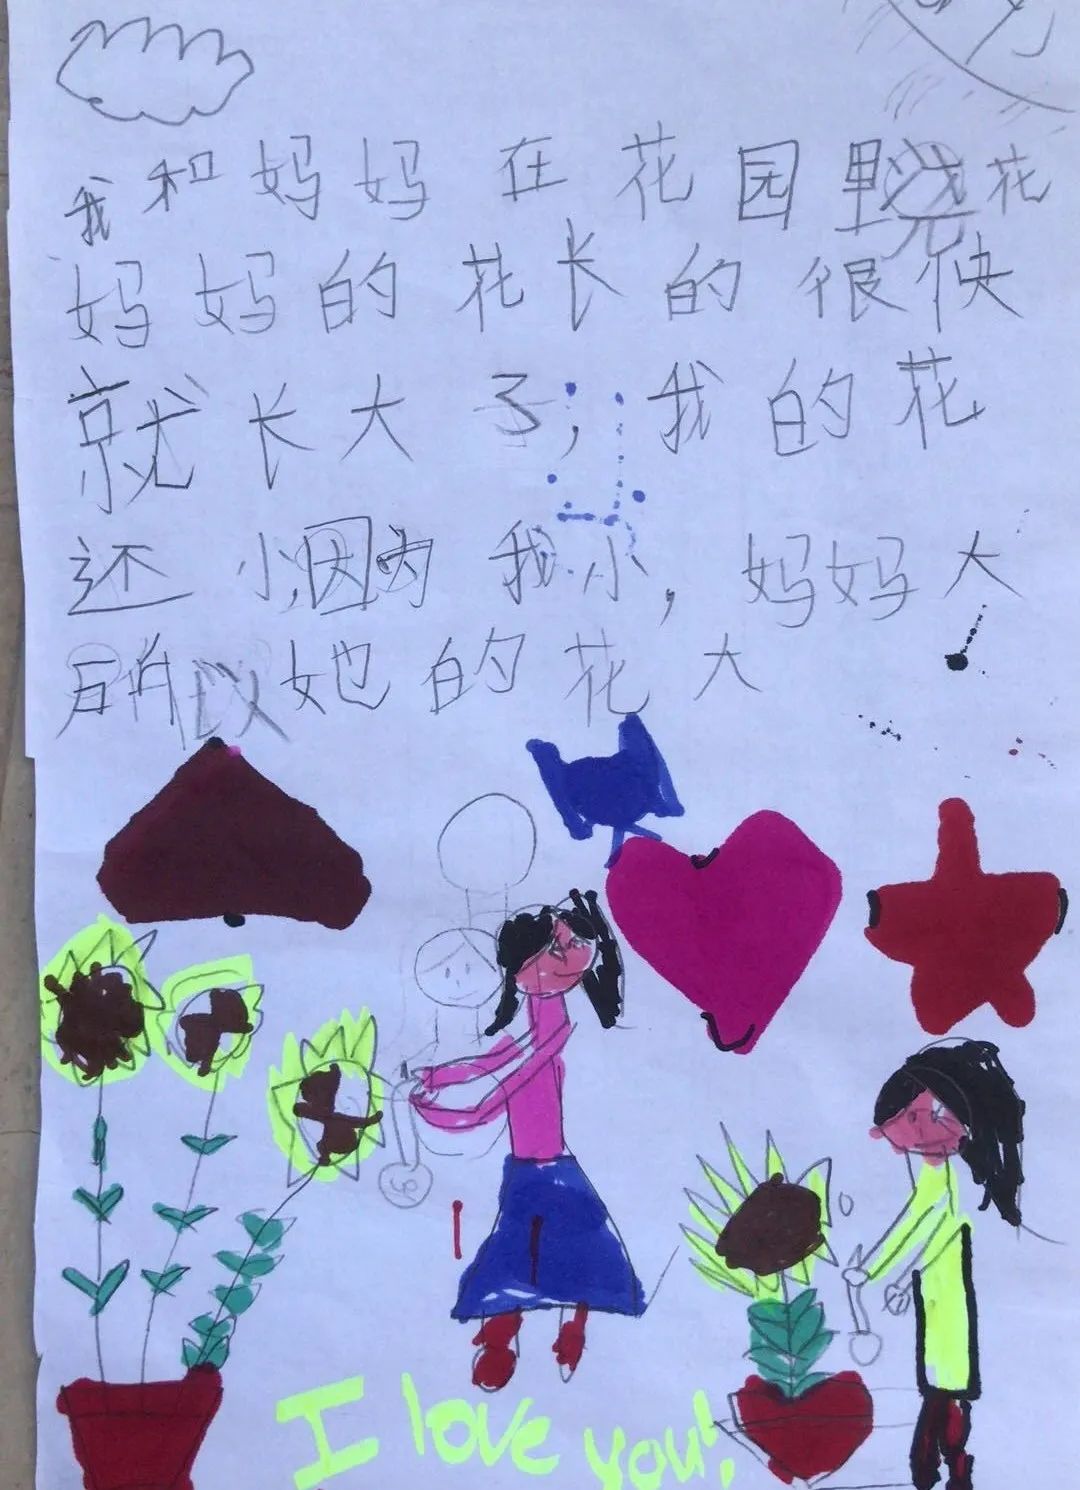 我和妈妈在花园里浇花
妈妈的花长的很快
就长大了；我的花
还小,因为我小，妈妈大
所以她的花大
I love you!